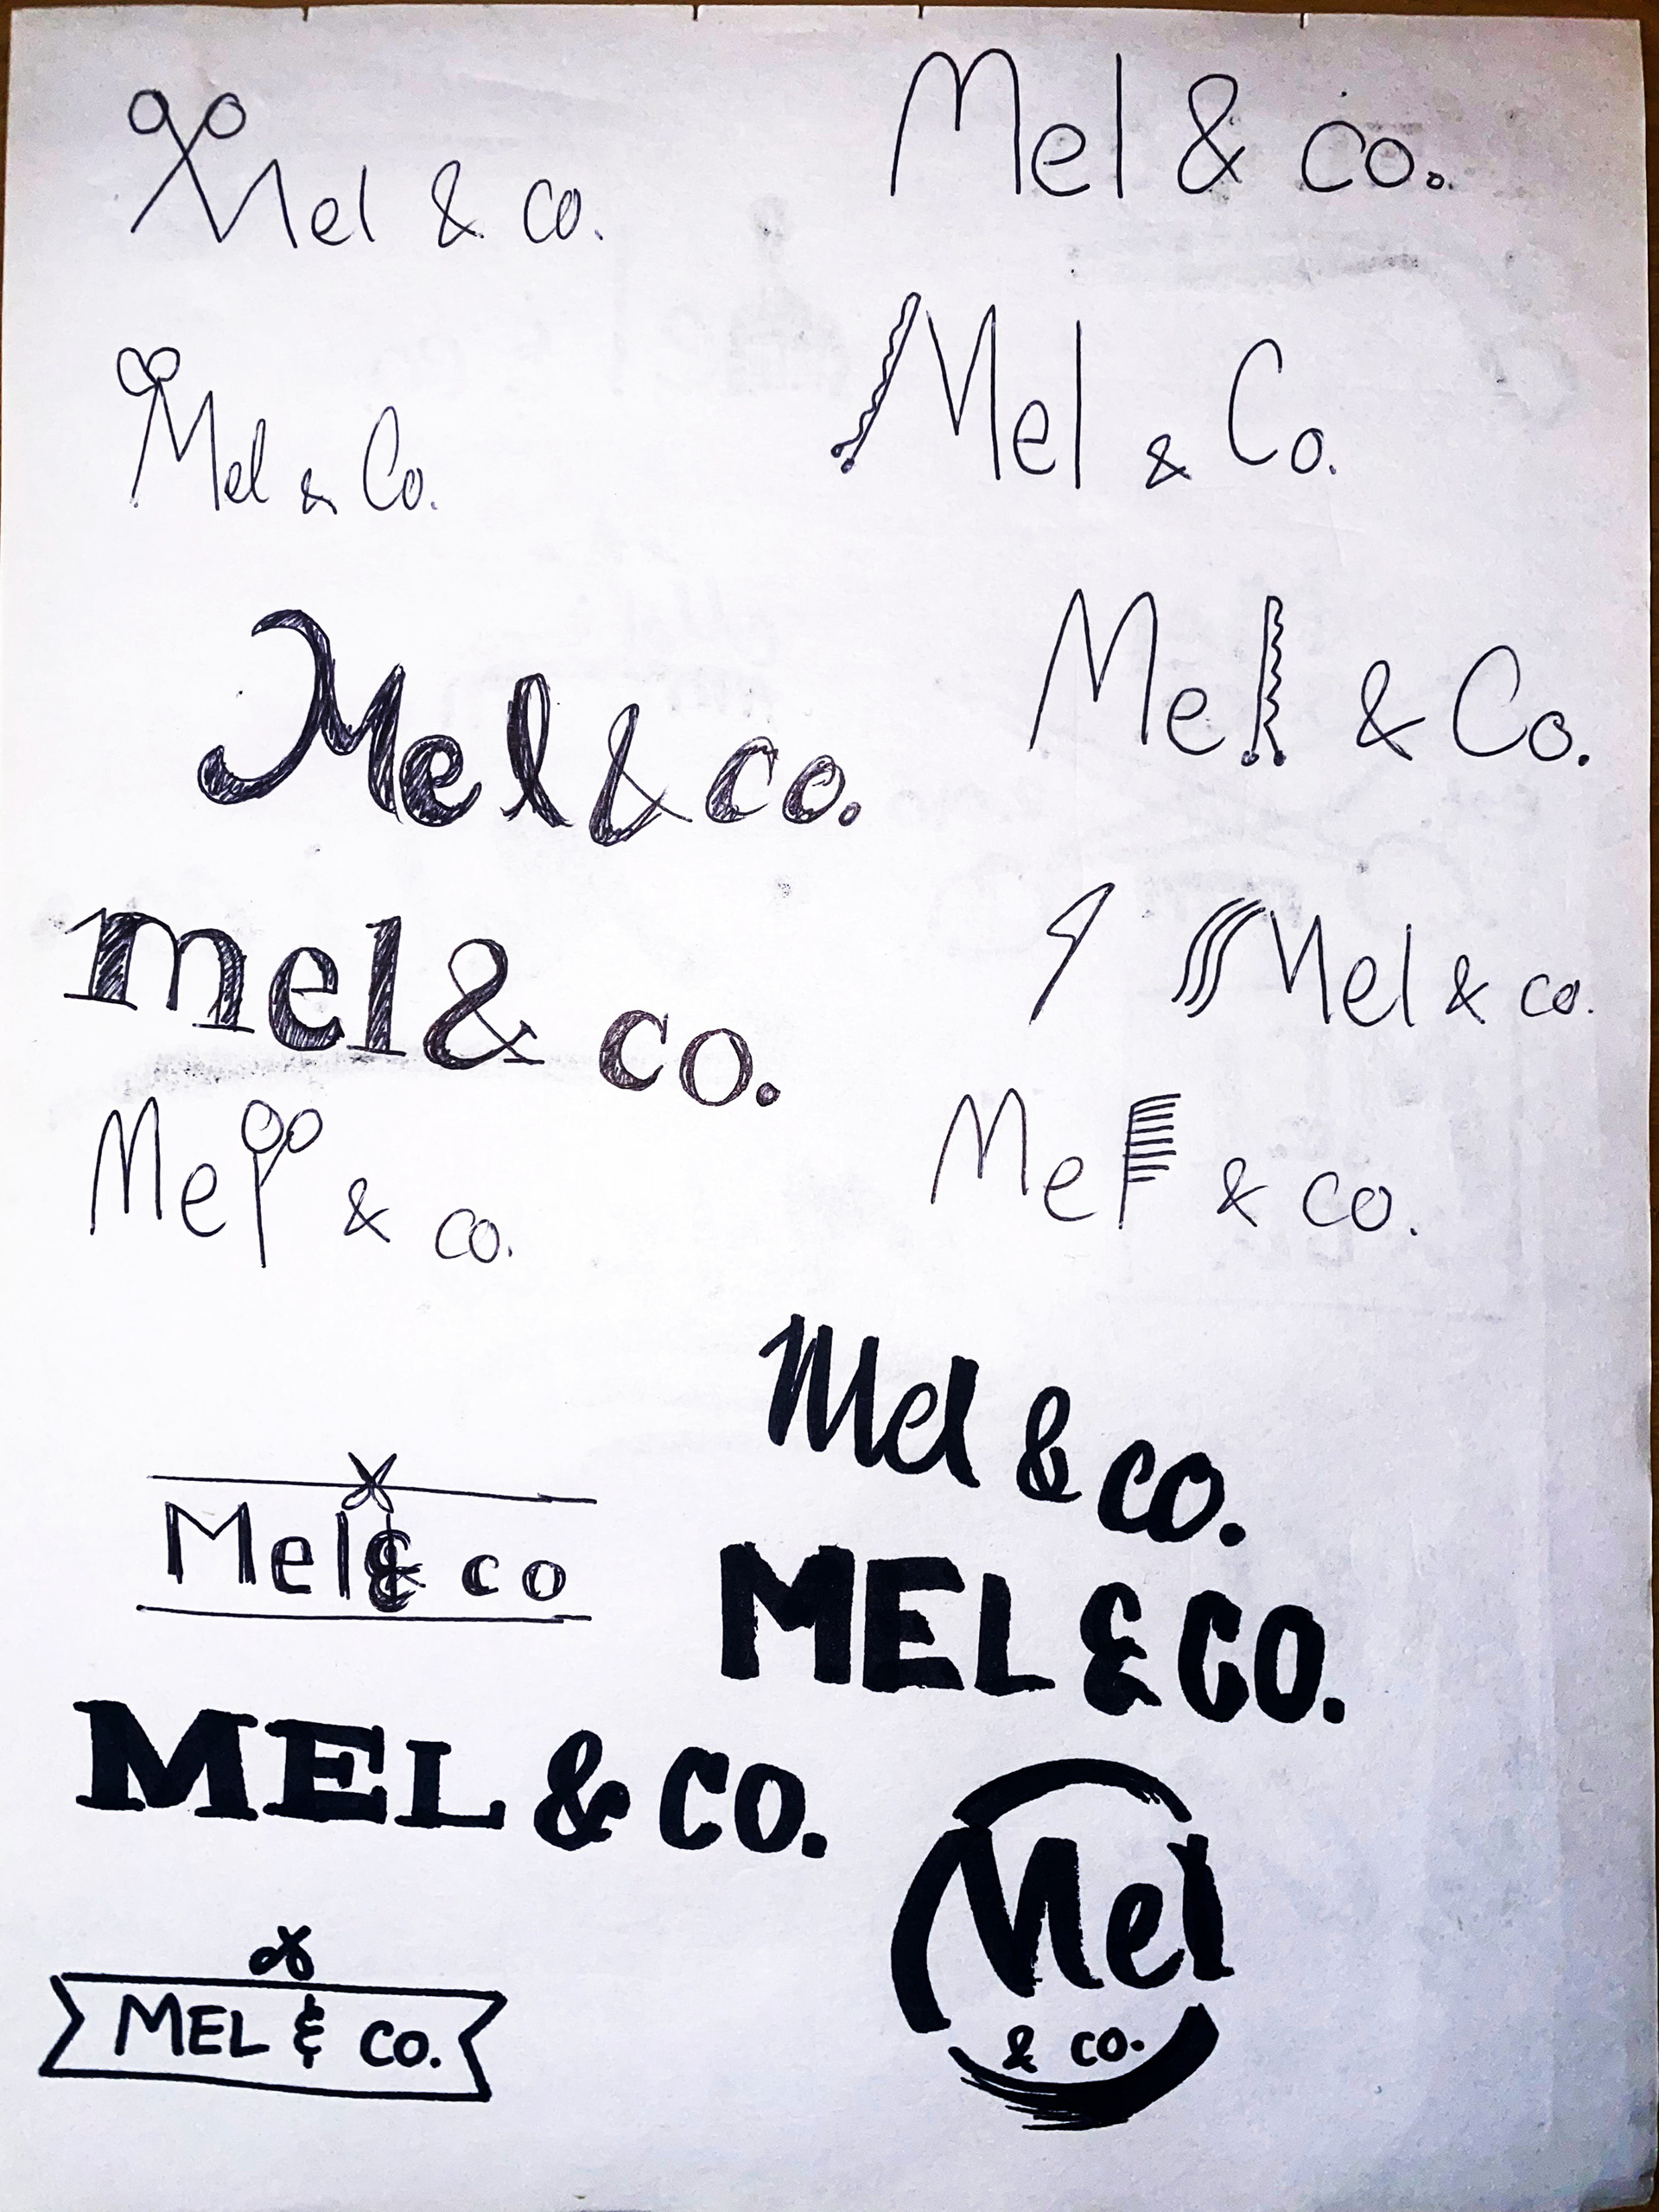 Mel & co.
Mel & co.
Mel & Co.
Mel & Co.
Mel & co.
Mel & Co.
mel & co.
Mel & co.
Mel & co.
Mel & co.
Mel & co.
Mel & co
MEL & CO.
MEL & CO.
Mel
& co.
MEL & CO.